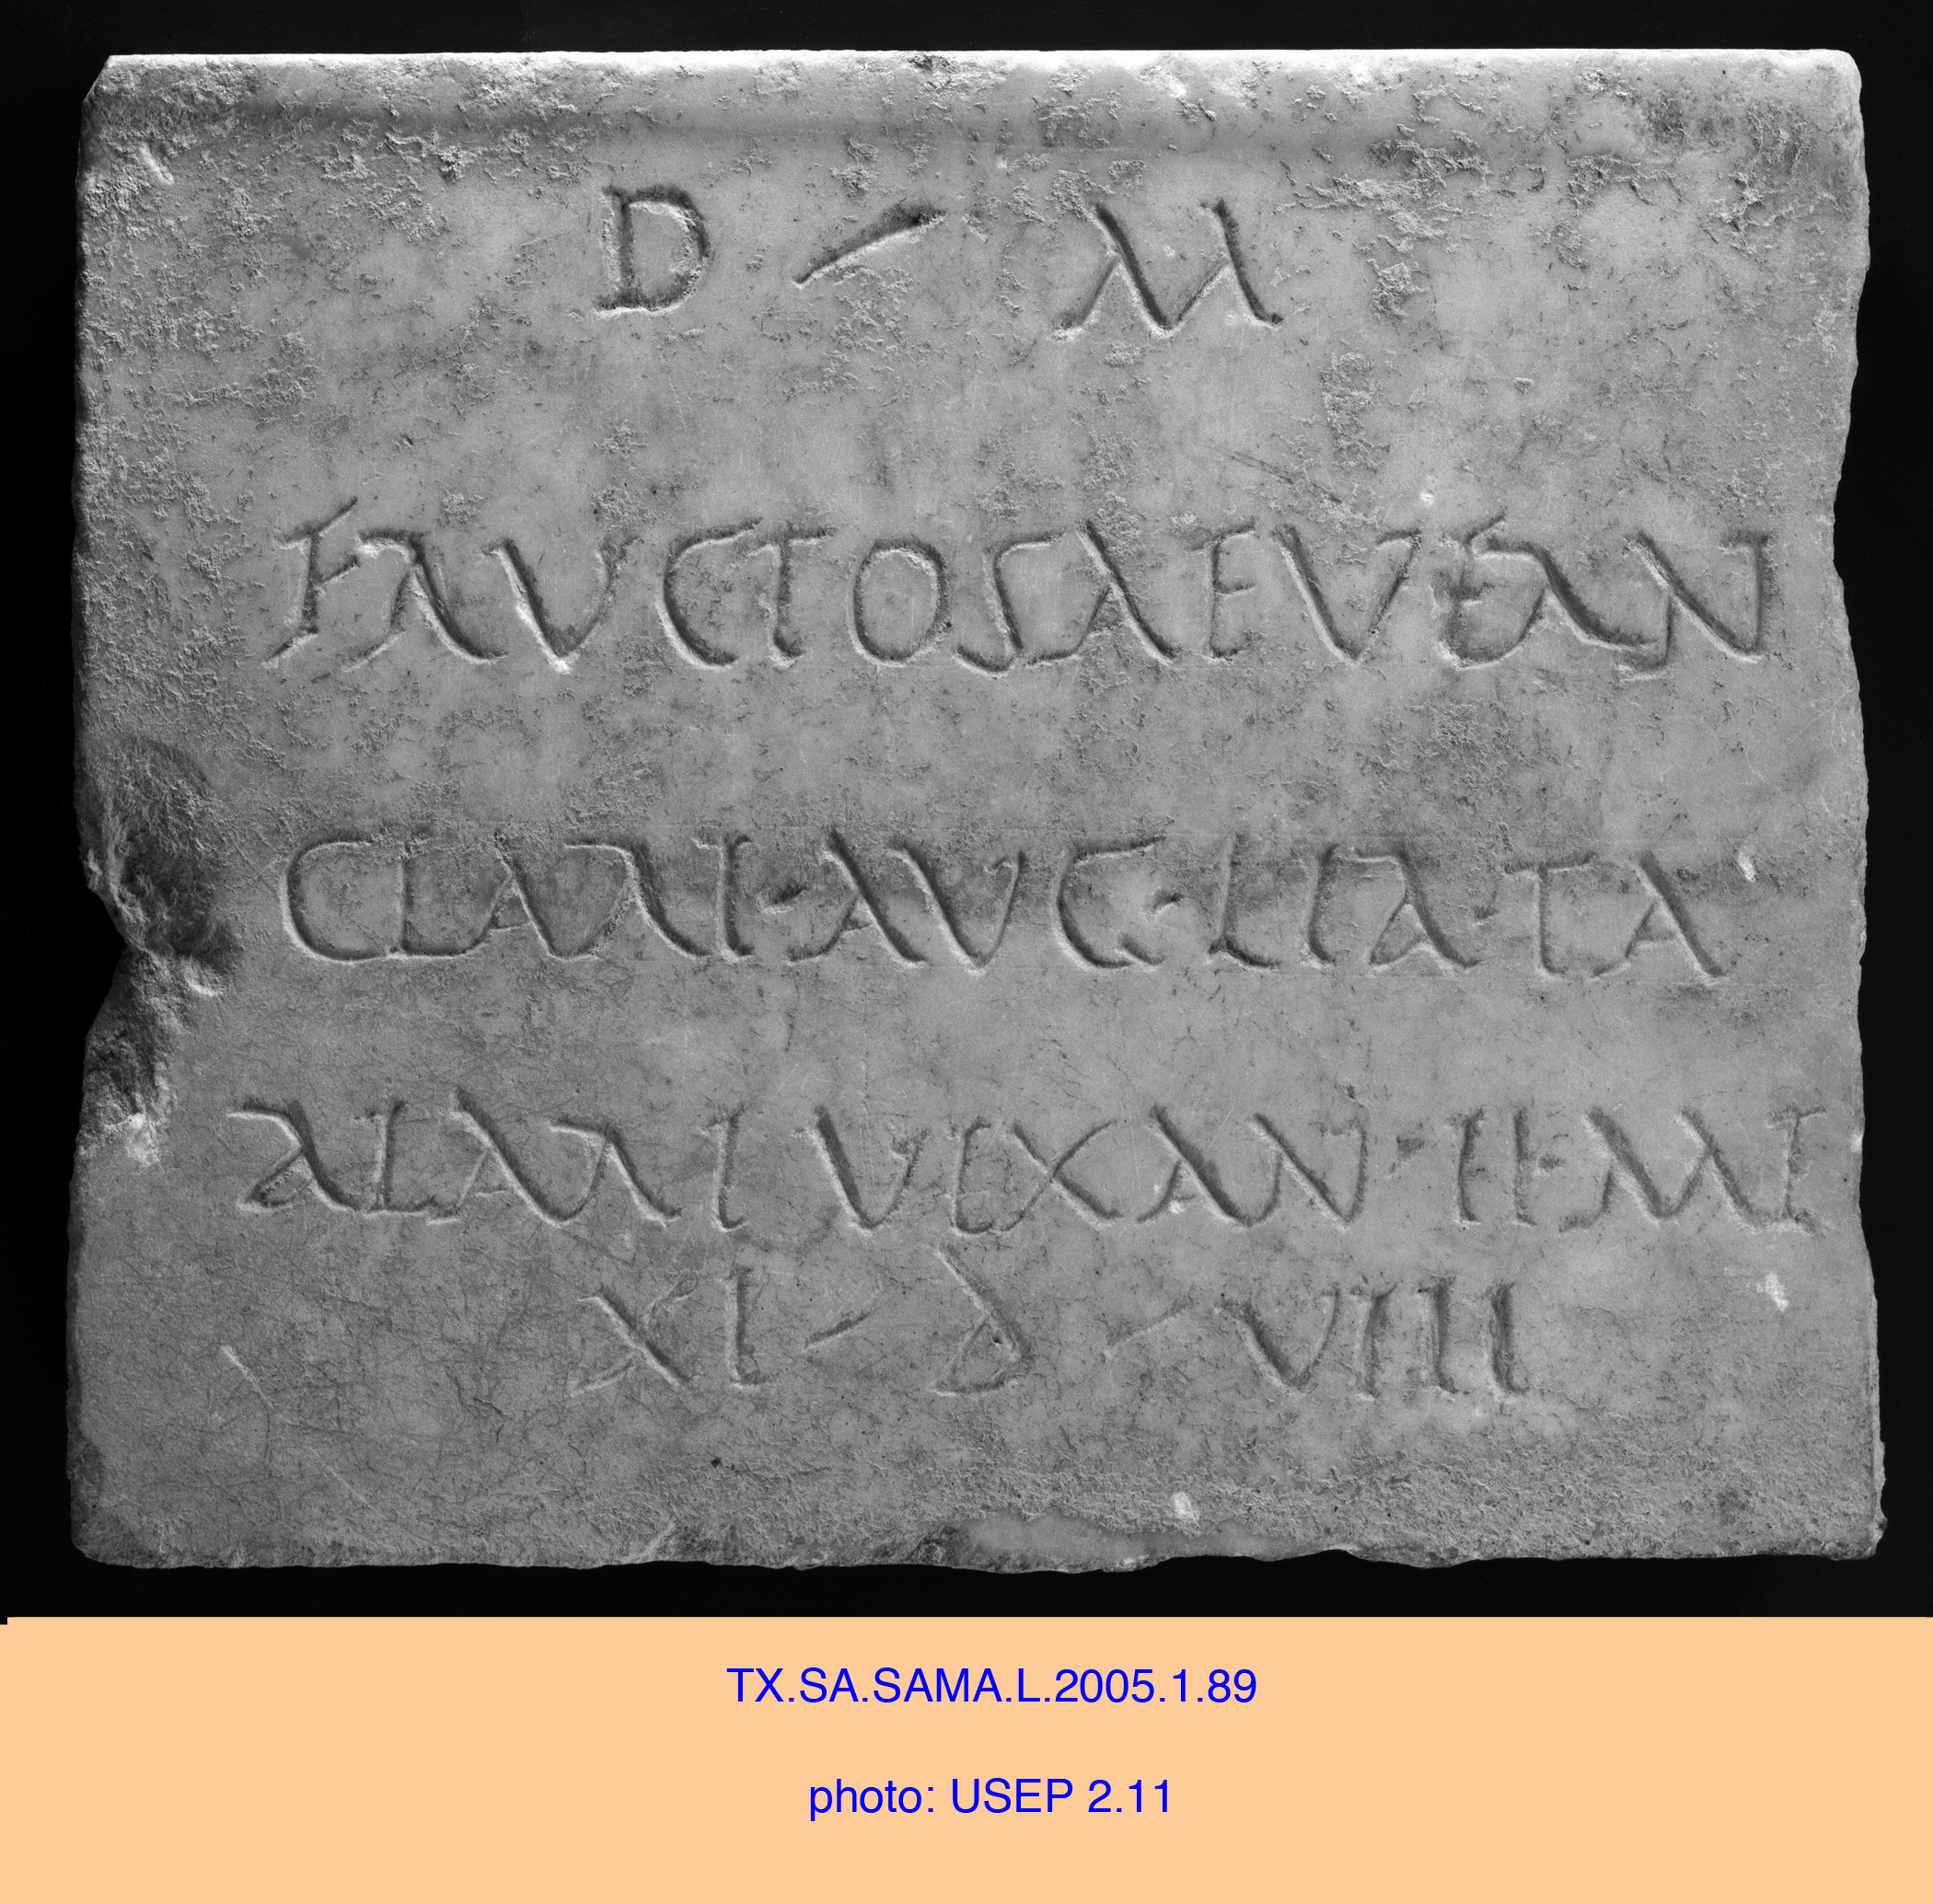 D / M
FRVCTOSAE VERN
CLARI·AVG·LIB·TA
BLARI VIX AN·II·ME
XI / D / VIII
TX.SA.SAMA.L.2005.1.89
photo: USEP 2.11